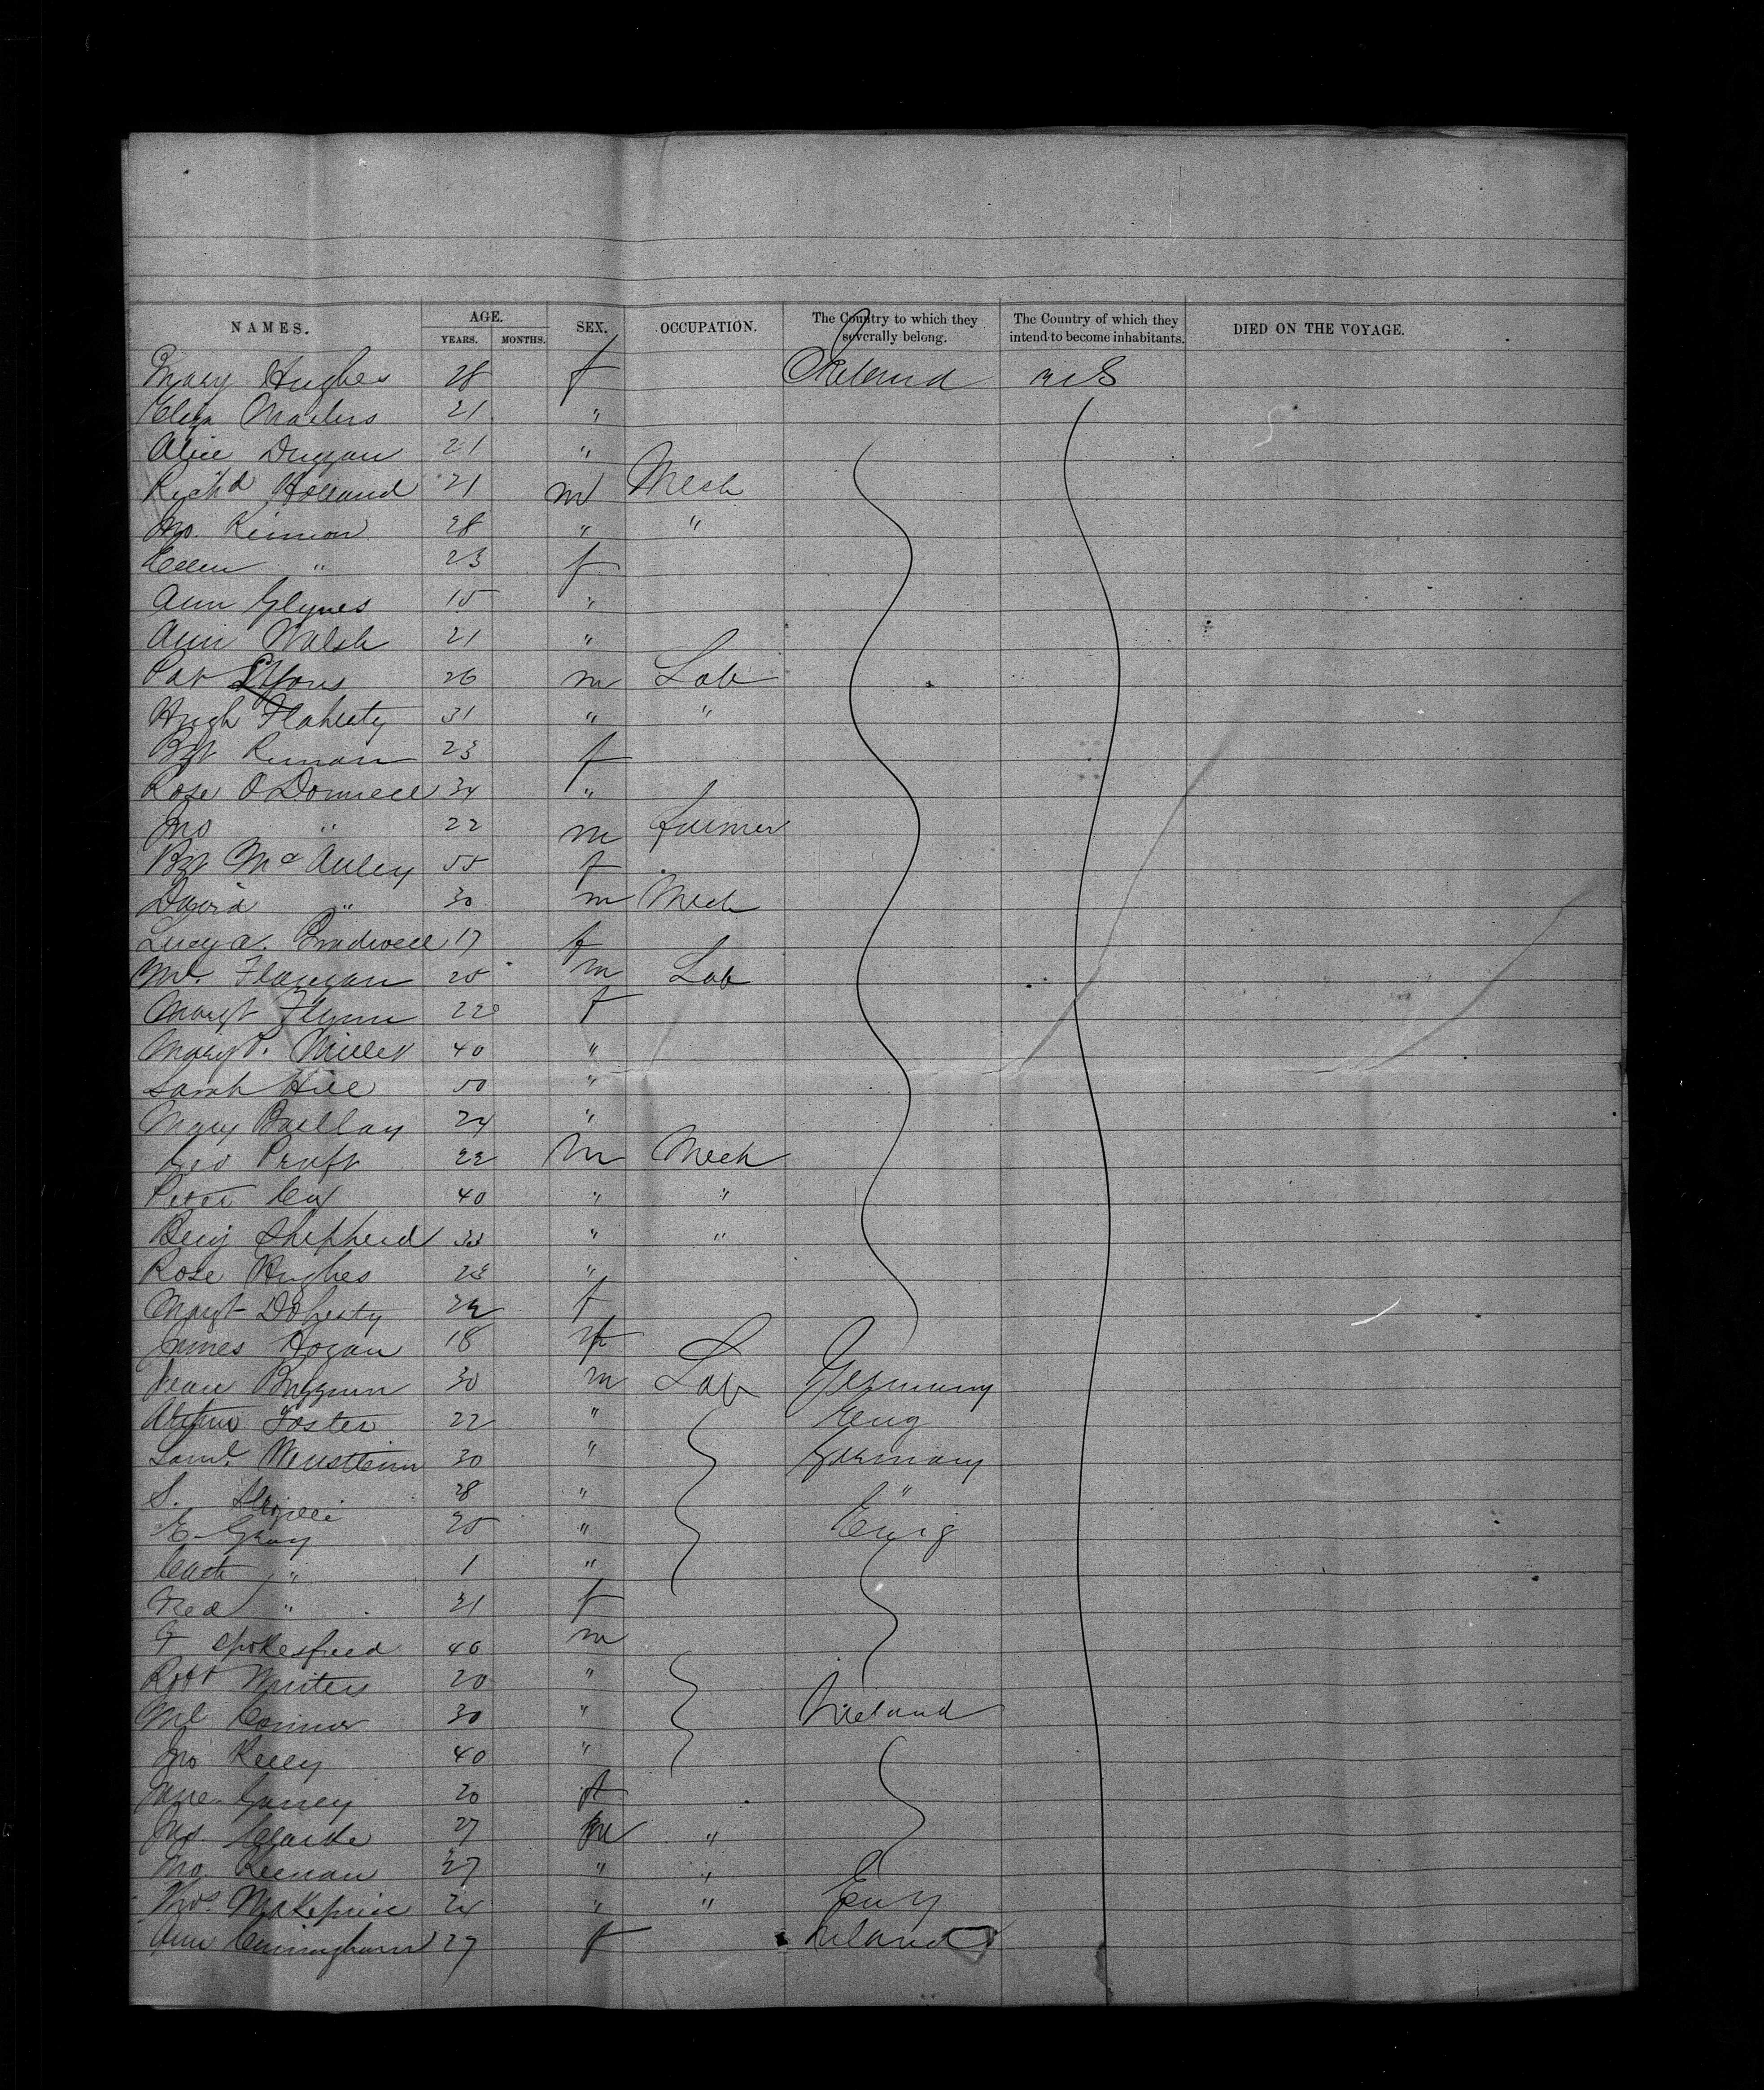 NAMES. AGE. YEARS. MONTHS. SEX. OCCUPATION. The Country to which they severally belong. The Country of which they intend to become inhabitants. DIED ON THE VOYAGE.
Mary Hughes 28 f Ireland U S
Eliza 21 "
Alice Duggan 21 "
Rich'd Holland 21 m Mech
Jno. Kinnon 28 " "
Ellen " 23 f
Ann Glynes 15 "
Ann Walsh 21 "
Pat Lyons 26 m Lab
Hugh Flaherty 31 " "
Bgt 23 f
Rose O'Donnell 34 "
Jno " 22 m farmer
Bgt McAuley 55 f
David " 30 m Mech
Lucy A. Bradwell 17 f
Ml. Flanegan 25 m Lab
Margt Flynn 22 f
Mary P. Miller 40 "
Sarah Hill 50 "
Mary 24 "
Geo 22 m Mech
Peter Cox 40 " "
Benj Shepherd 33 " "
Rose Hughes 23 "
Margt Doherty 22 f
James Hogan 18
30 m Lab Germany
Foster 22 " Eng
Saml. 30 " Germany
S. 28 " "
E Gray 25 " Eng
Cath " 1 "
Ned " 31 f
40 m
Robt 20 "
Ml Connor 30 " Ireland
Jno Kelly 40 "
Jane 20 f
Jno. Clarke 27 m "
Jno. Keenan 27 " "
Thos. Makepiece 24 " " Eng
Ann Cunningham 27 f Ireland